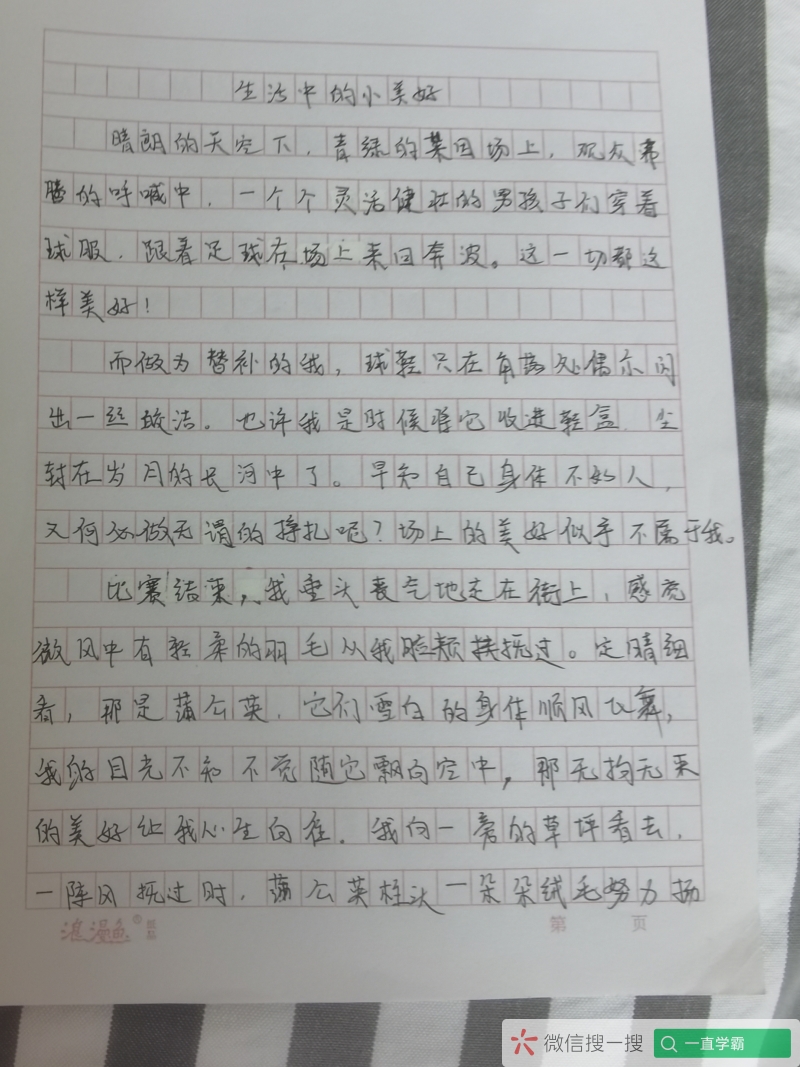 生活中的小美好
晴朗的天空下,青绿的菜园场上,观众沸
腾的呼喊中,一个个灵活健壮的男孩子们穿着
球服,跟着足球在场上来回奔波。这一切都这
样美好!
而做为替补的我,球鞋只在角落处偶尔闪
出一丝皎洁。也许我是时候将它收进鞋盒 尘
封在岁月的长河中了。早知自己身体不如人,
又何必做无谓的挣扎呢?场上的美好似乎不属于我。
比赛结束,我垂头丧气地走在街上,感觉
微风中有轻柔的羽毛从我脸颊抚过。定睛细
看,那是蒲公英,它们雪白的身体顺风飞舞,
我的目光不知不觉随它飘向空中,那无拘无束
的美好让我心生向往。我向一旁的草坪看去,
一阵风抚过时,蒲公英枝头一朵朵绒毛努力扬
浪漫鱼
第 页
微信搜一搜
一直学霸